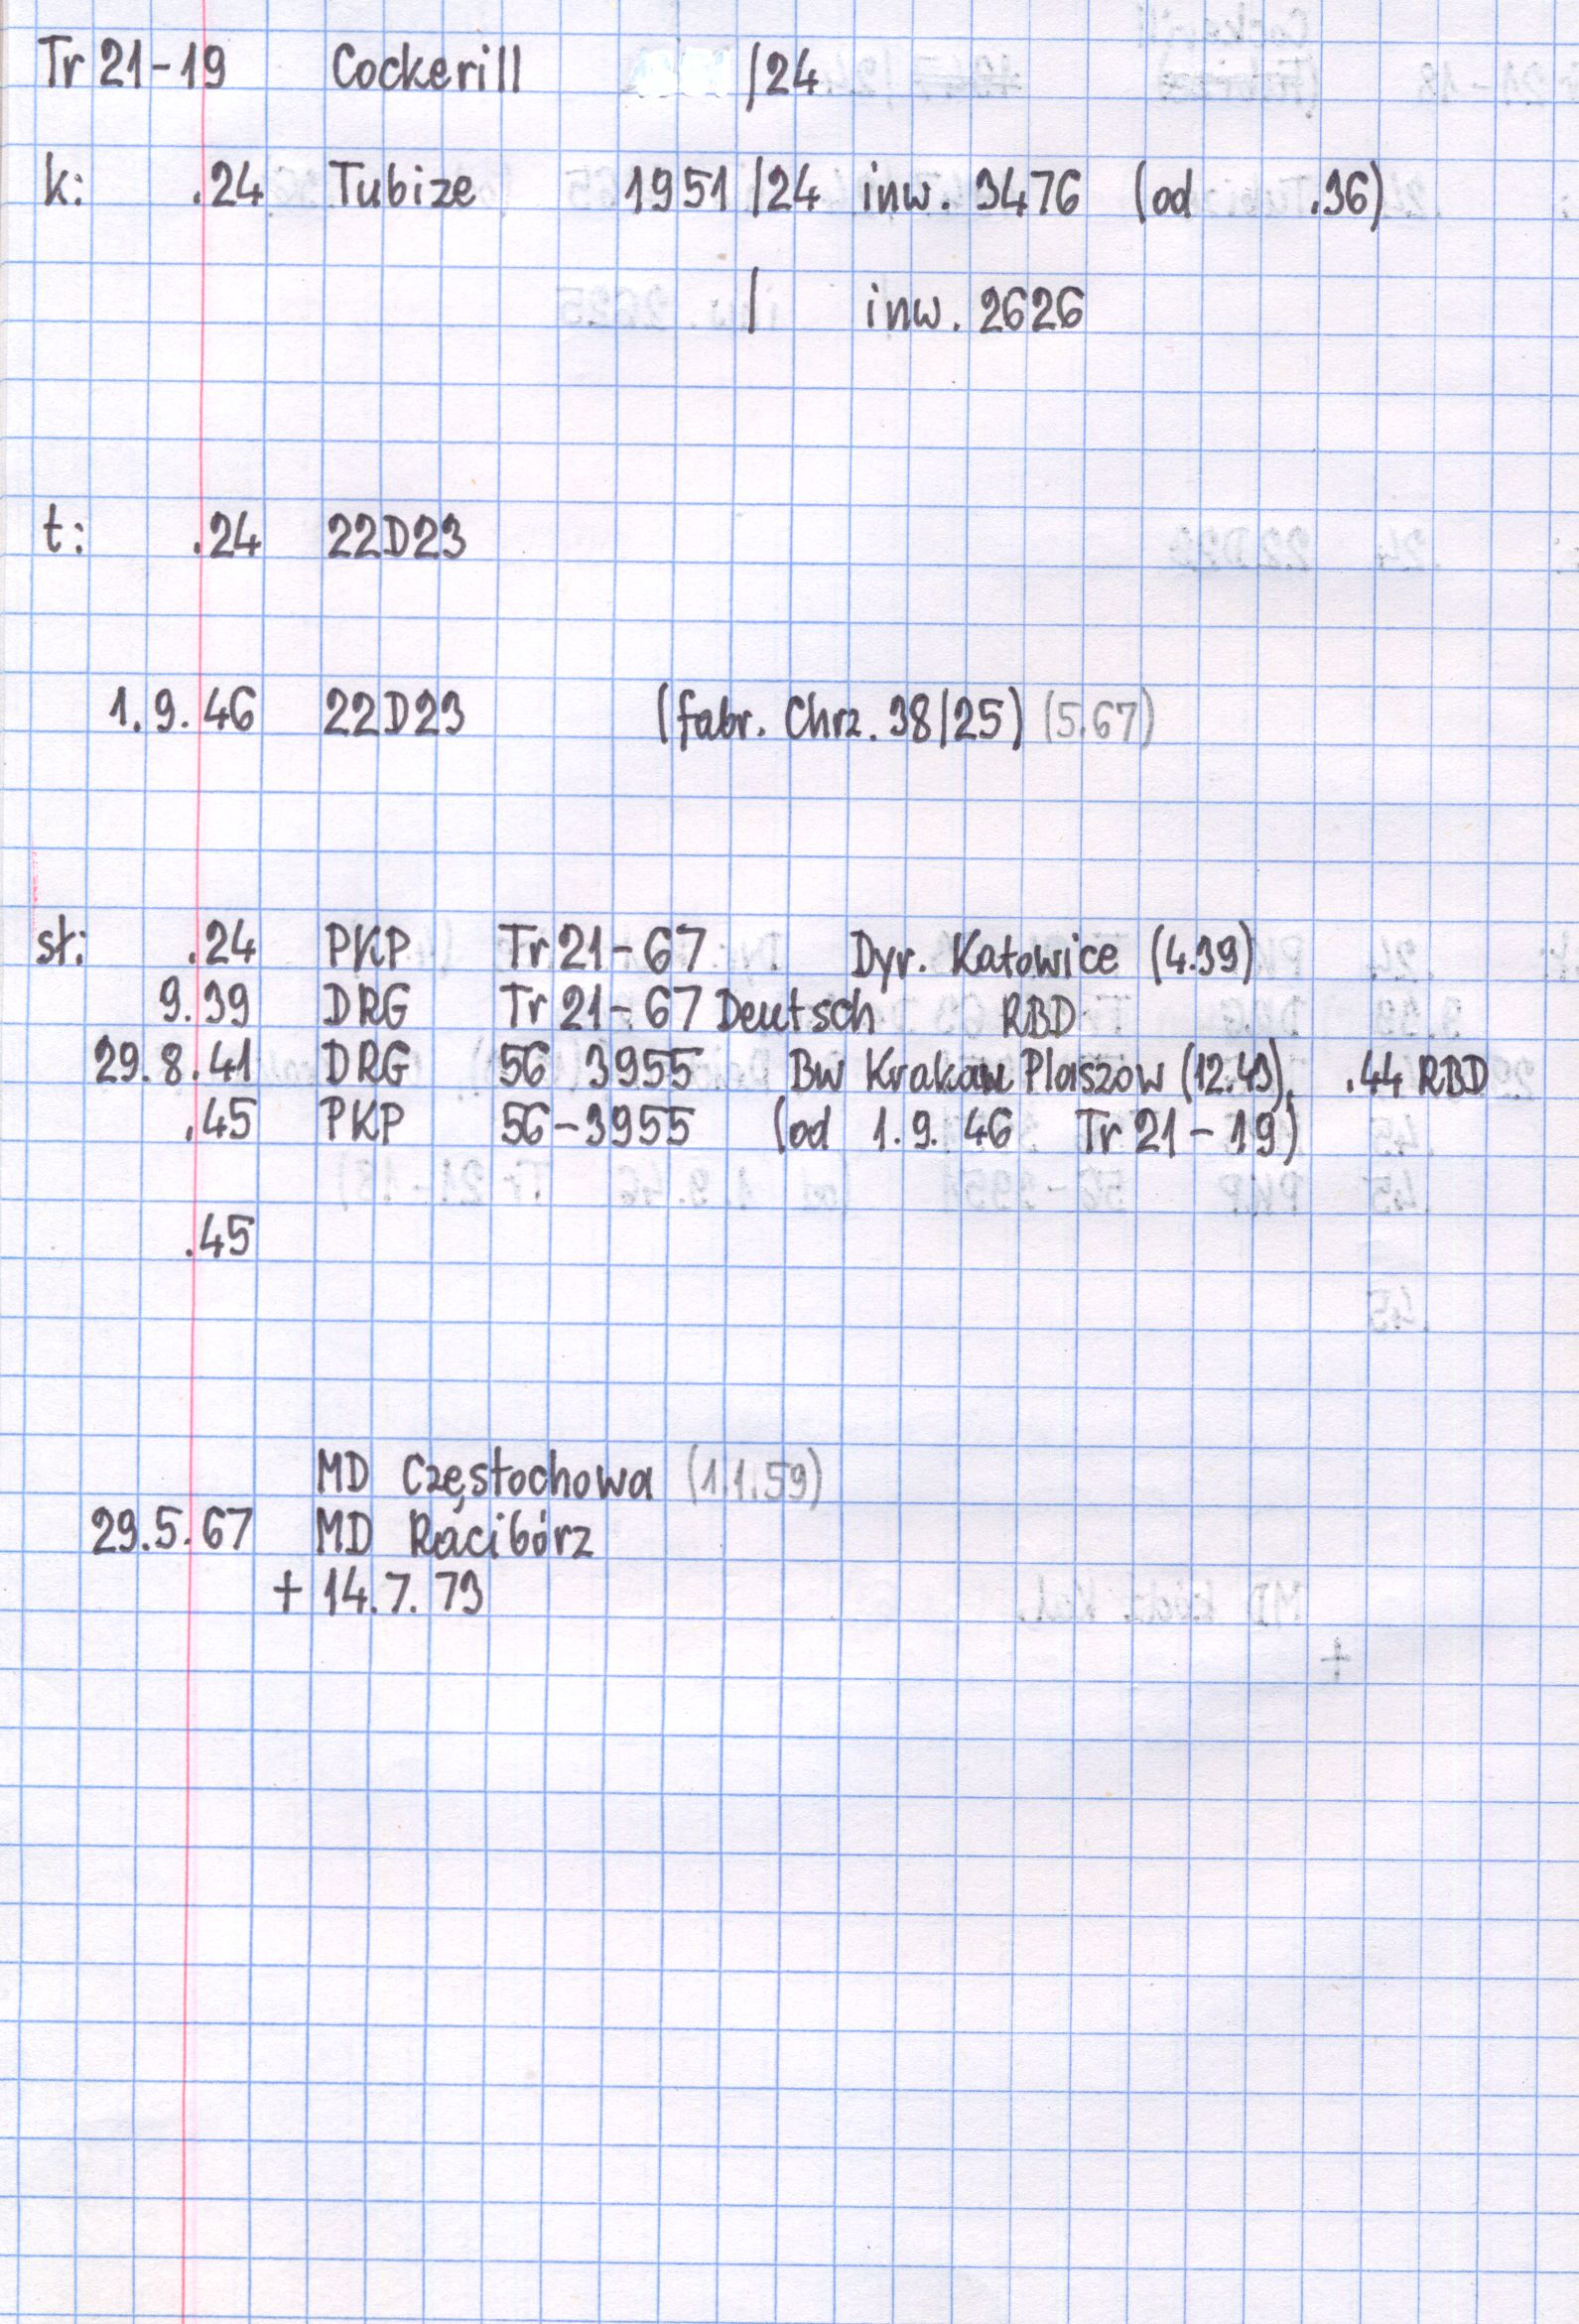 Tr 21-19 Cockerill /24
k: .24 Tubize 1951 /24 inw. 3476 (od .36)
/ inw. 2626
t: .24 22D23
1.9.46 22D23 (fabr. Chrz. 38/25) (5.67)
st: .24 PKP Tr 21-67 Dyr. Katowice (4.39)
9.39 DRG Tr 21-67 Deutsch RBD
29.8.41 DRG 56 3955 Bw Krakau Plaszow (12.43), .44 RBD
.45 PKP 56-3955 (od 1.9.46 Tr 21-19)
.45
MD Częstochowa (1.1.59)
29.5.67 MD Racibórz
+ 14.7.73